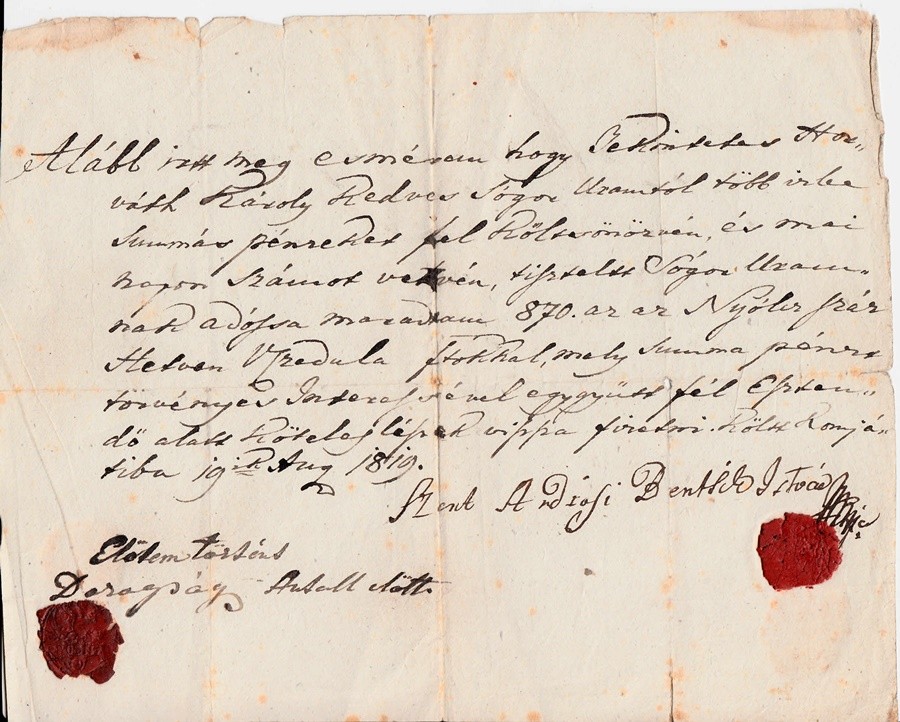 Alább irtt meg esmérem hogy Tekintetes Hor-
váth Károly Kedves Sógor Uramtól több izbe
Summás pénzeket fel költsönözvén, és mai
napon Számot vetvén, tisztelt Sógor Uram-
nak adóssa maradtam 870. az az Nyólcz száz
Hetven Czedula ftokkal, mely Summa pénzt
törvényes Interessével egygyütt fél Eszten-
dő alatt Köteleslépek vissza fizetni. Költ Komjá-
tiba 19ik Aug 1819.
Szent Andrási Bentsik István
Előtem történt
Antall előtt